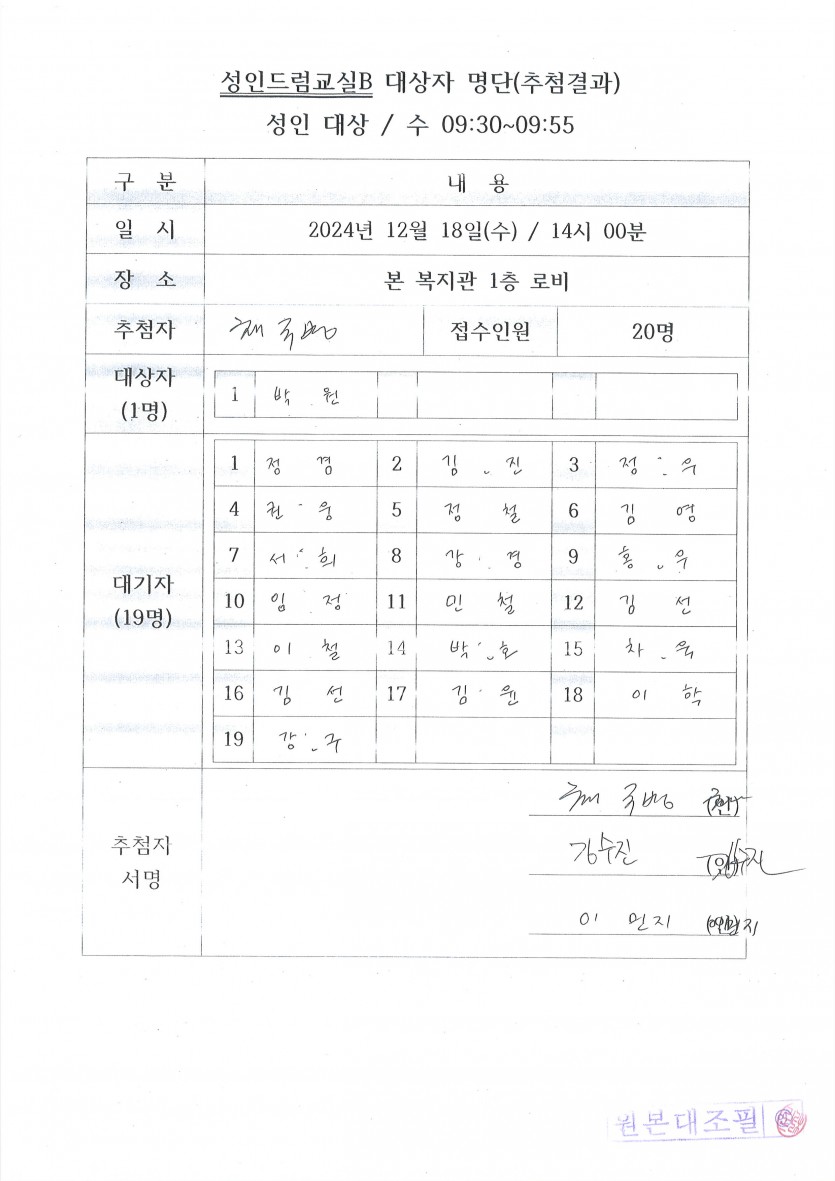 성인드럼교실B 대상자 명단(추첨결과)
성인 대상 / 수 09:30~09:55
구 분 내 용
일 시 2024년 12월 18일(수) / 14시 00분
장 소 본 복지관 1층 로비
추첨자 채국병 접수인원 20명
대상자 (1명)
1 박 원
대기자 (19명)
1 정 경 2 김 진 3 정 우
4 권 웅 5 정 철 6 김 영
7 서 희 8 강 경 9 홍 우
10 임 정 11 민 철 12 김 선
13 이 철 14 박 호 15 차 욱
16 김 선 17 김 윤 18 이 학
19 강 구
추첨자 서명
채국병 (인)
김수진 (인)
이먼지 (인)
원본대조필